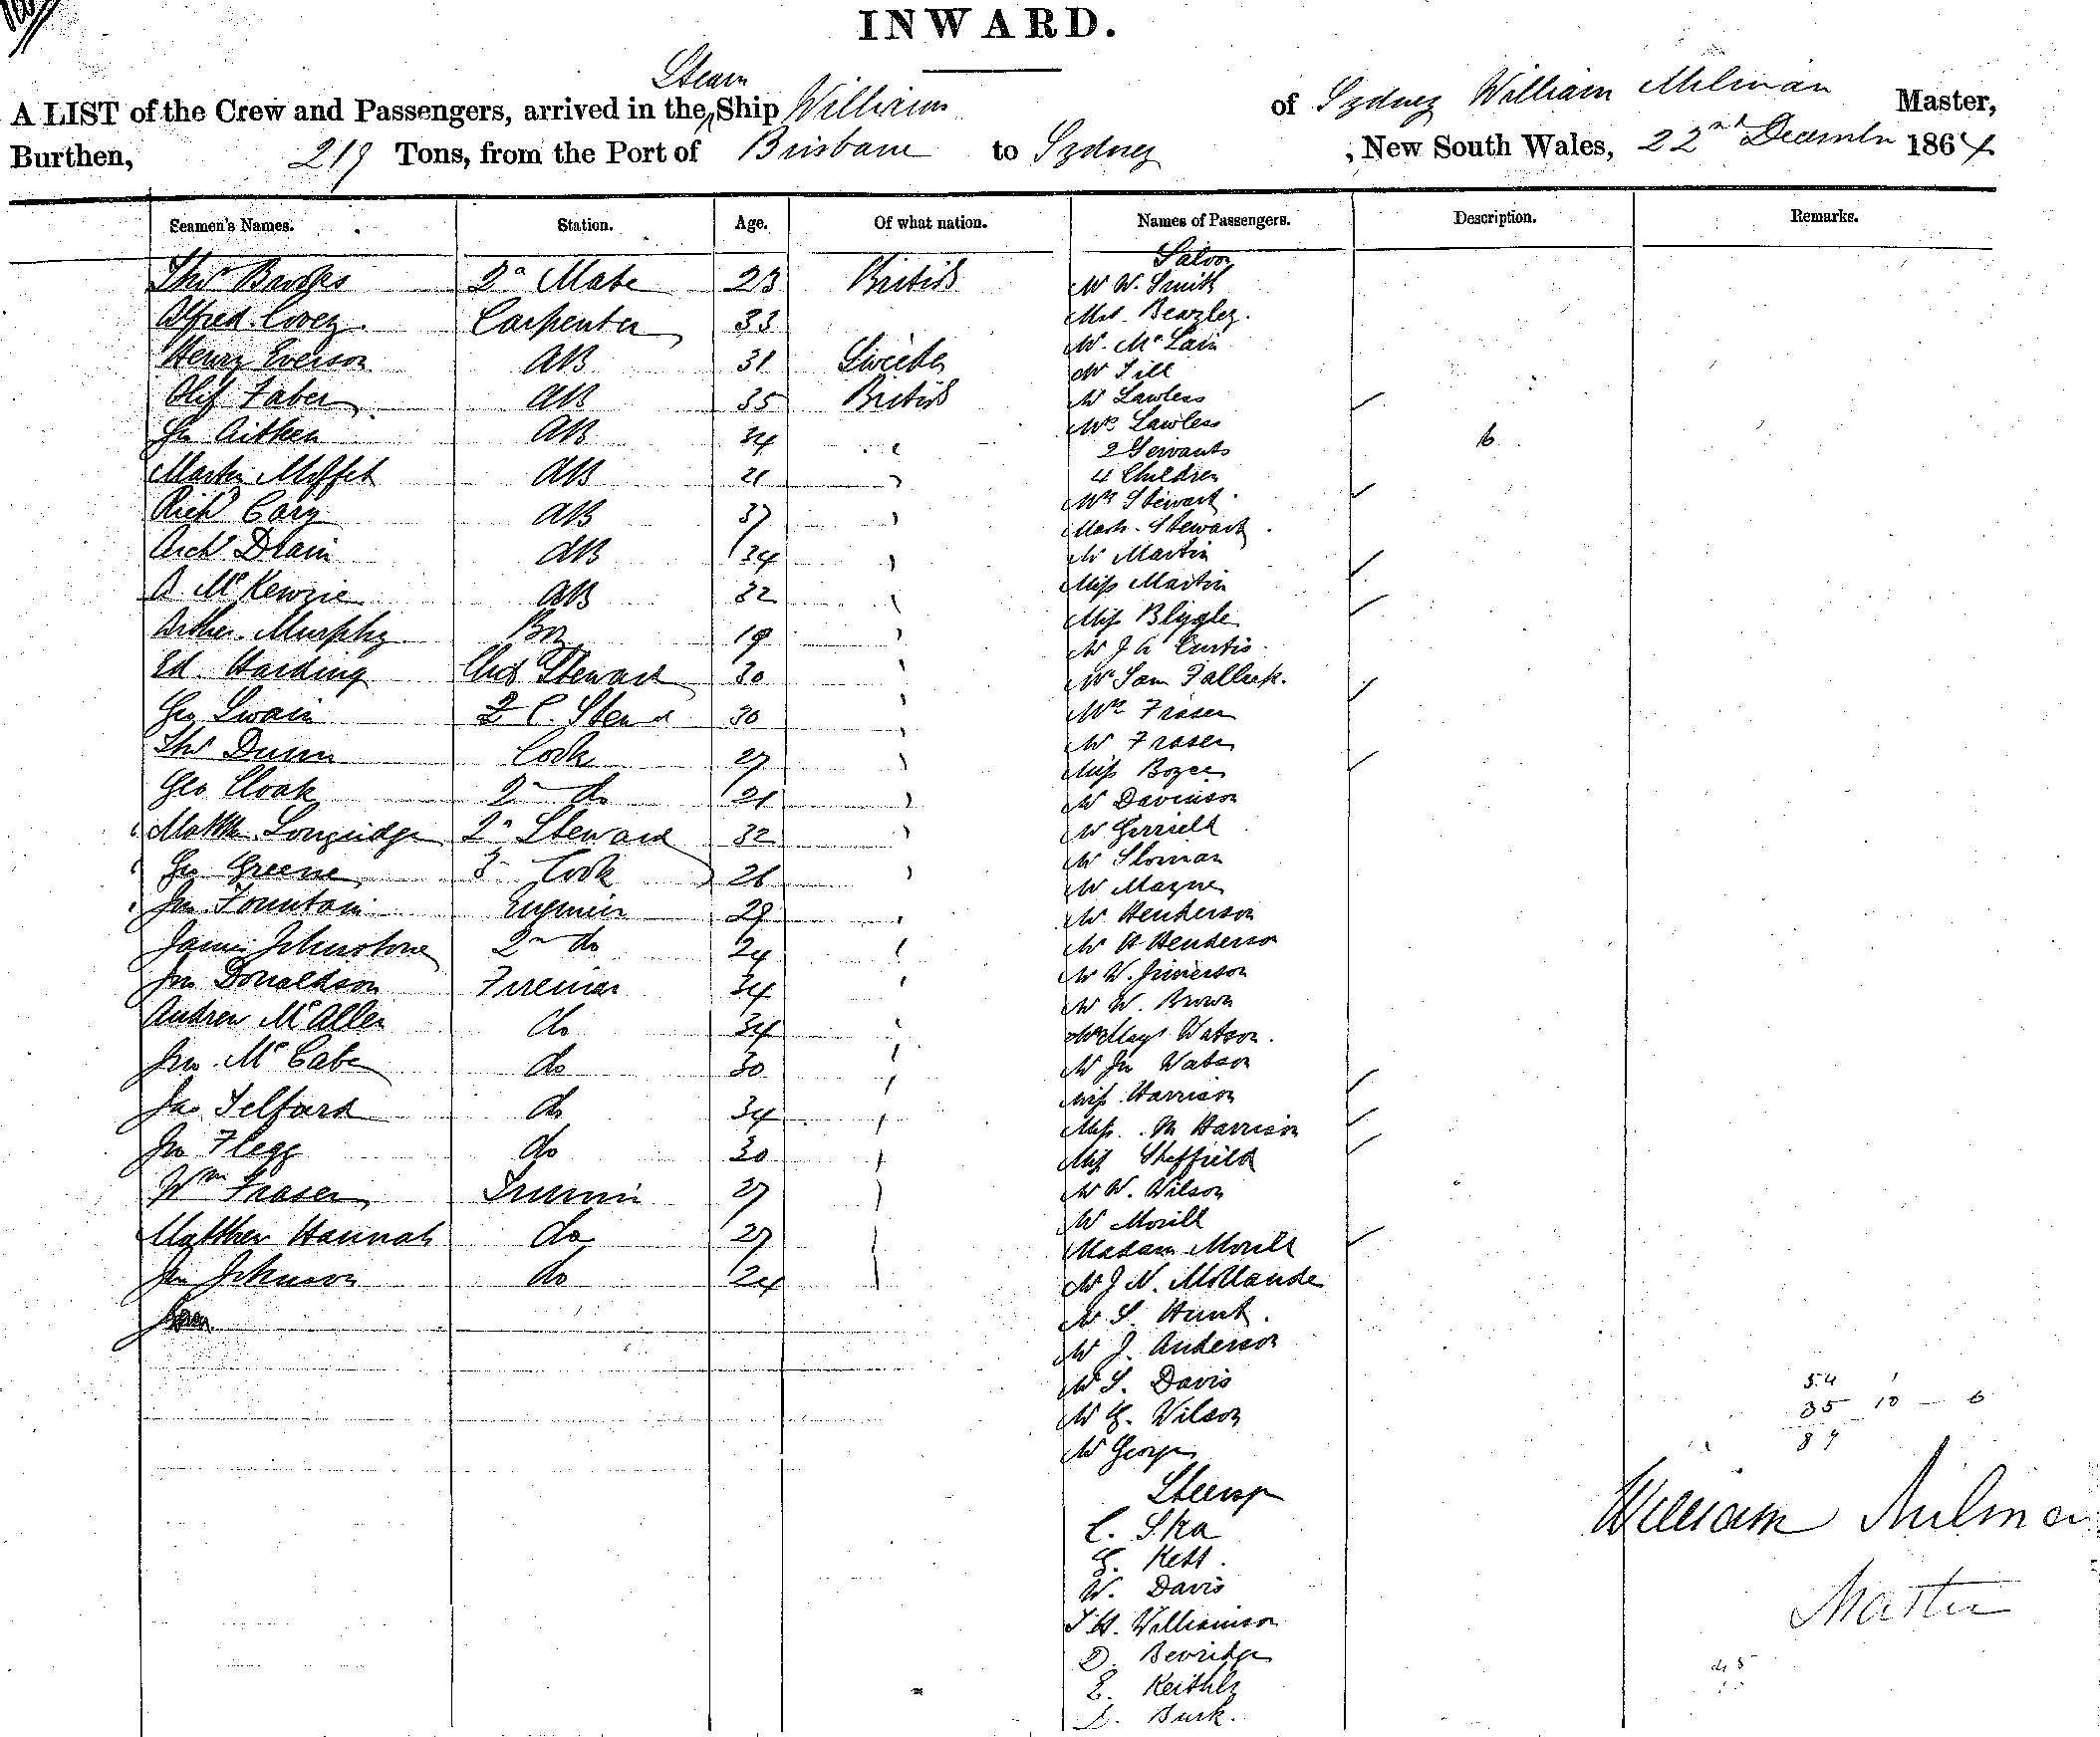 INWARD.
Steam
A LIST of the Crew and Passengers, arrived in the Ship Williams of Sydney William Milman Master,
Burthen, 219 Tons, from the Port of Brisbane to Sydney , New South Wales, 22nd December 1864
Seamen's Names. Station. Age. Of what nation. Names of Passengers. Description. Remarks.
Saloon
Thos 2d Mate 23 British Mr W. Smith
Alfred Covey Carpenter 33 Beazley.
Henry Everson AB 31 Swede Mr McLain
Olif Faber AB 35 British Mr Till
Mr Lawless
Jn Aitken AB 34 " Mrs Lawless
2 Servants 6
Martin Moffet AB 21 " 4 Children
Richd Cary AB 37 " Mrs Stewart
Mast. Stewart
Archd Drain AB 34 " Mr Martin
McKenzie AB 32 " Miss Martin
Arther Murphy Boy 19 " Miss
Mr J A Curtis
Ed. Harding Chief Steward 30 " Mr Sam
Geo Swain 2 C. Stewd 30 " Mrs Fraser
Thos Dunn Cook 27 " Mr Fraser
Miss Boyce
Geo Cloak 2nd do 21 " Mr Davinson
Matth Longridge 2d Steward 32 " Mr
Geo Greene 3 Cook 26 " Mr Sloman
Mr Mayne
Jn Fountain Engineer 29 " Mr Henderson
James Johnstone 2nd do 24 " Mr H Henderson
Jn Donaldson Fireman 34 " Mr W. Jimerson
Mr W. Brown
Andrew McAllen do 34 " Watson.
Jno McCabe do 30 " Mr Jn Watson
Miss Harrison
Jas Telford do 34 " Miss M Harrison
Jn Flegg do 30 " Miss Sheffield
Wm Fraser Trimmer 27 " Mr W. Wilson
Mr Morill
Matthew Hannah do 27 " Madam Morill
Jn Johnson do 24 " Mr J N. Mollande
Mr S. Hunt.
Mr J. Anderson
Mr S. Davis 54 1
Mr G. Wilson 35 10 — 6
Mr George 89
Steerage
C. Ska William Milman
G. Kett.
W. Davis Master
T H. Williamson
D. Bevridge
E. Keithly 45
Burk.